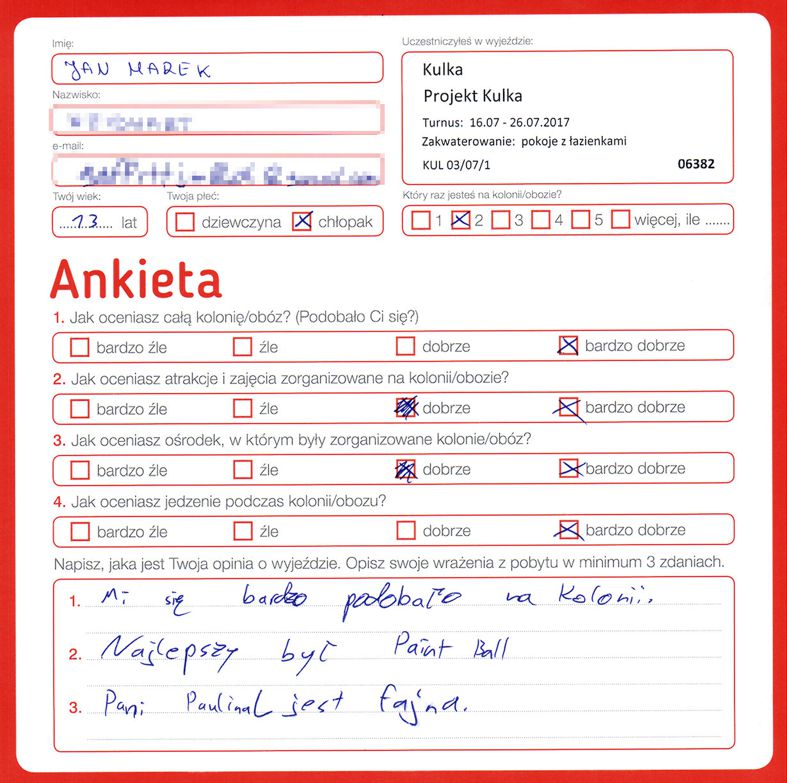 Imię:
JAN MAREK
Nazwisko:
e-mail:
Twój wiek:
13 lat
Twoja płeć:
dziewczyna chłopak
Uczestniczyłeś w wyjeździe:
Kulka
Projekt Kulka
Turnus: 16.07 - 26.07.2017
Zakwaterowanie: pokoje z łazienkami
KUL 03/07/1 06382
Który raz jesteś na kolonii/obozie?
1 2 3 4 5 więcej, ile .......
Ankieta
1. Jak oceniasz całą kolonię/obóz? (Podobało Ci się?)
bardzo źle źle dobrze bardzo dobrze
2. Jak oceniasz atrakcje i zajęcia zorganizowane na kolonii/obozie?
bardzo źle źle dobrze bardzo dobrze
3. Jak oceniasz ośrodek, w którym były zorganizowane kolonie/obóz?
bardzo źle źle dobrze bardzo dobrze
4. Jak oceniasz jedzenie podczas kolonii/obozu?
bardzo źle źle dobrze bardzo dobrze
Napisz, jaka jest Twoja opinia o wyjeździe. Opisz swoje wrażenia z pobytu w minimum 3 zdaniach.
1. Mi się bardzo podobało na kolonii.
2. Najlepszy był Paint Ball
3. Pani jest fajna.